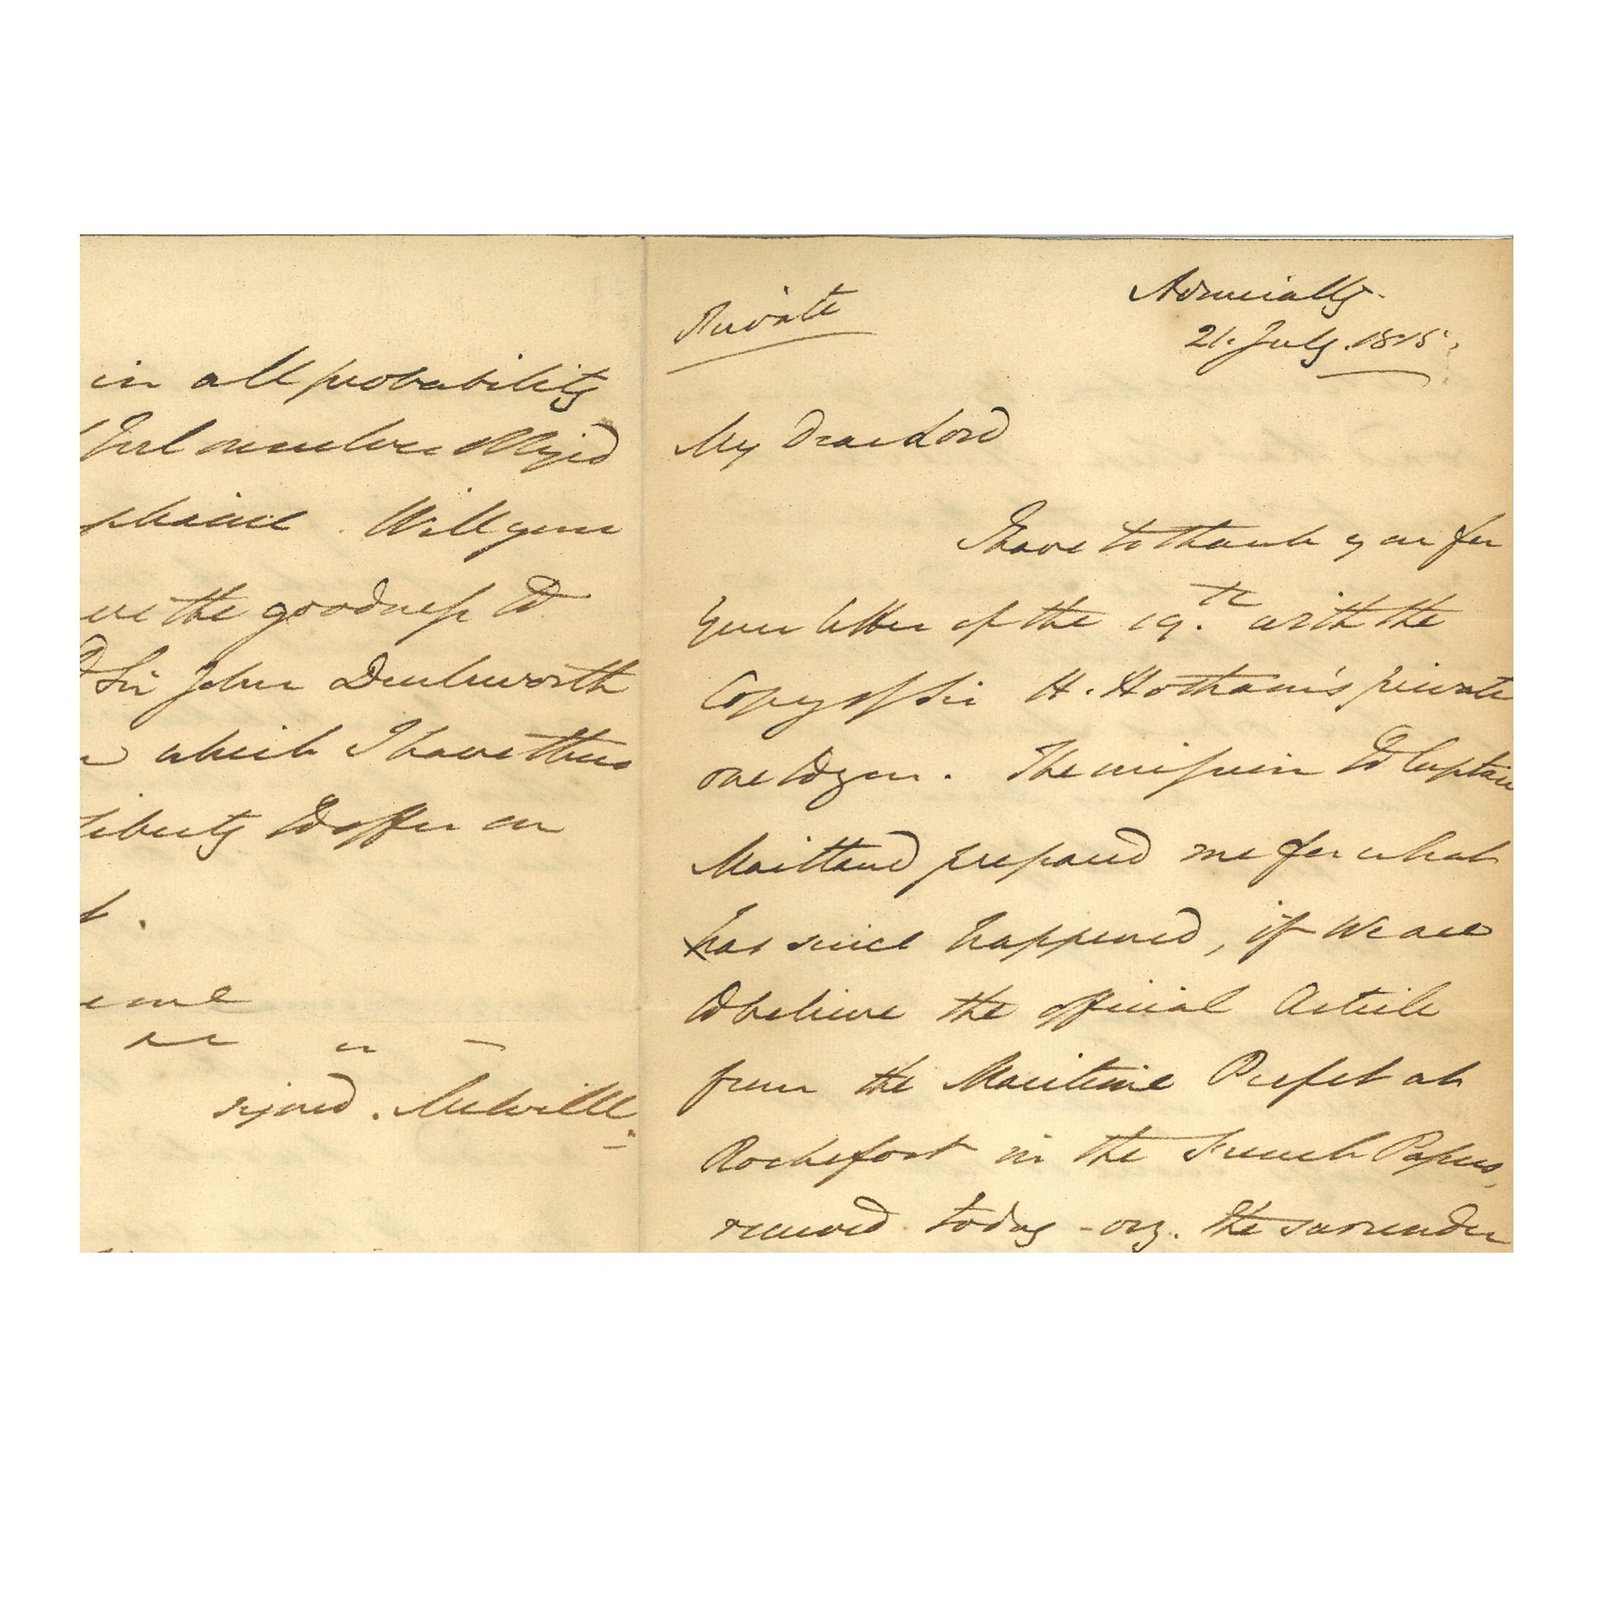 in all probability
feel ourselves obliged
Will you
the goodness to
Sir John Duckworth
which I have thus
liberty to offer on
signed. Melville
Private
Admiralty.
21. July. 1815.
My Dear Lord
I have to thank you for
your letter of the 19.th with the
Copy of Sir H. Hotham's private
one to you. The mission to Captain
Maitland prepared me for what
has since happened, if we are
to believe the official Article
from the Maritime Prefet at
Rochefort in the French Papers,
received today - viz. the surrender